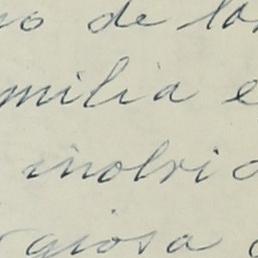 o de la
milia e
inolvi
giosa